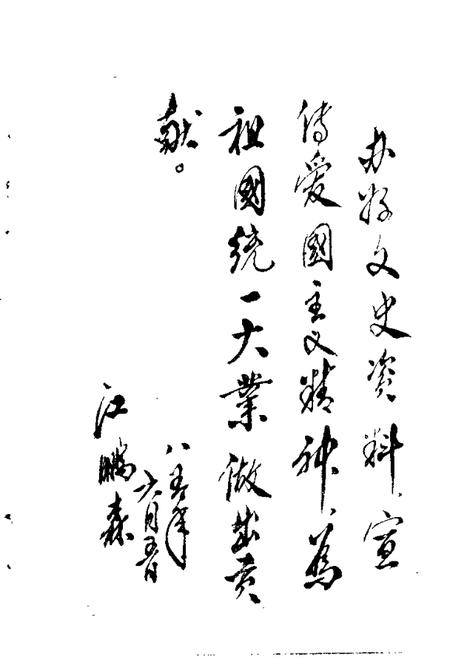 办好文史资料、宣
传爱國主义精神、為
祖國统一大業做出贡
献。
江鹏森
八五年
六月五日